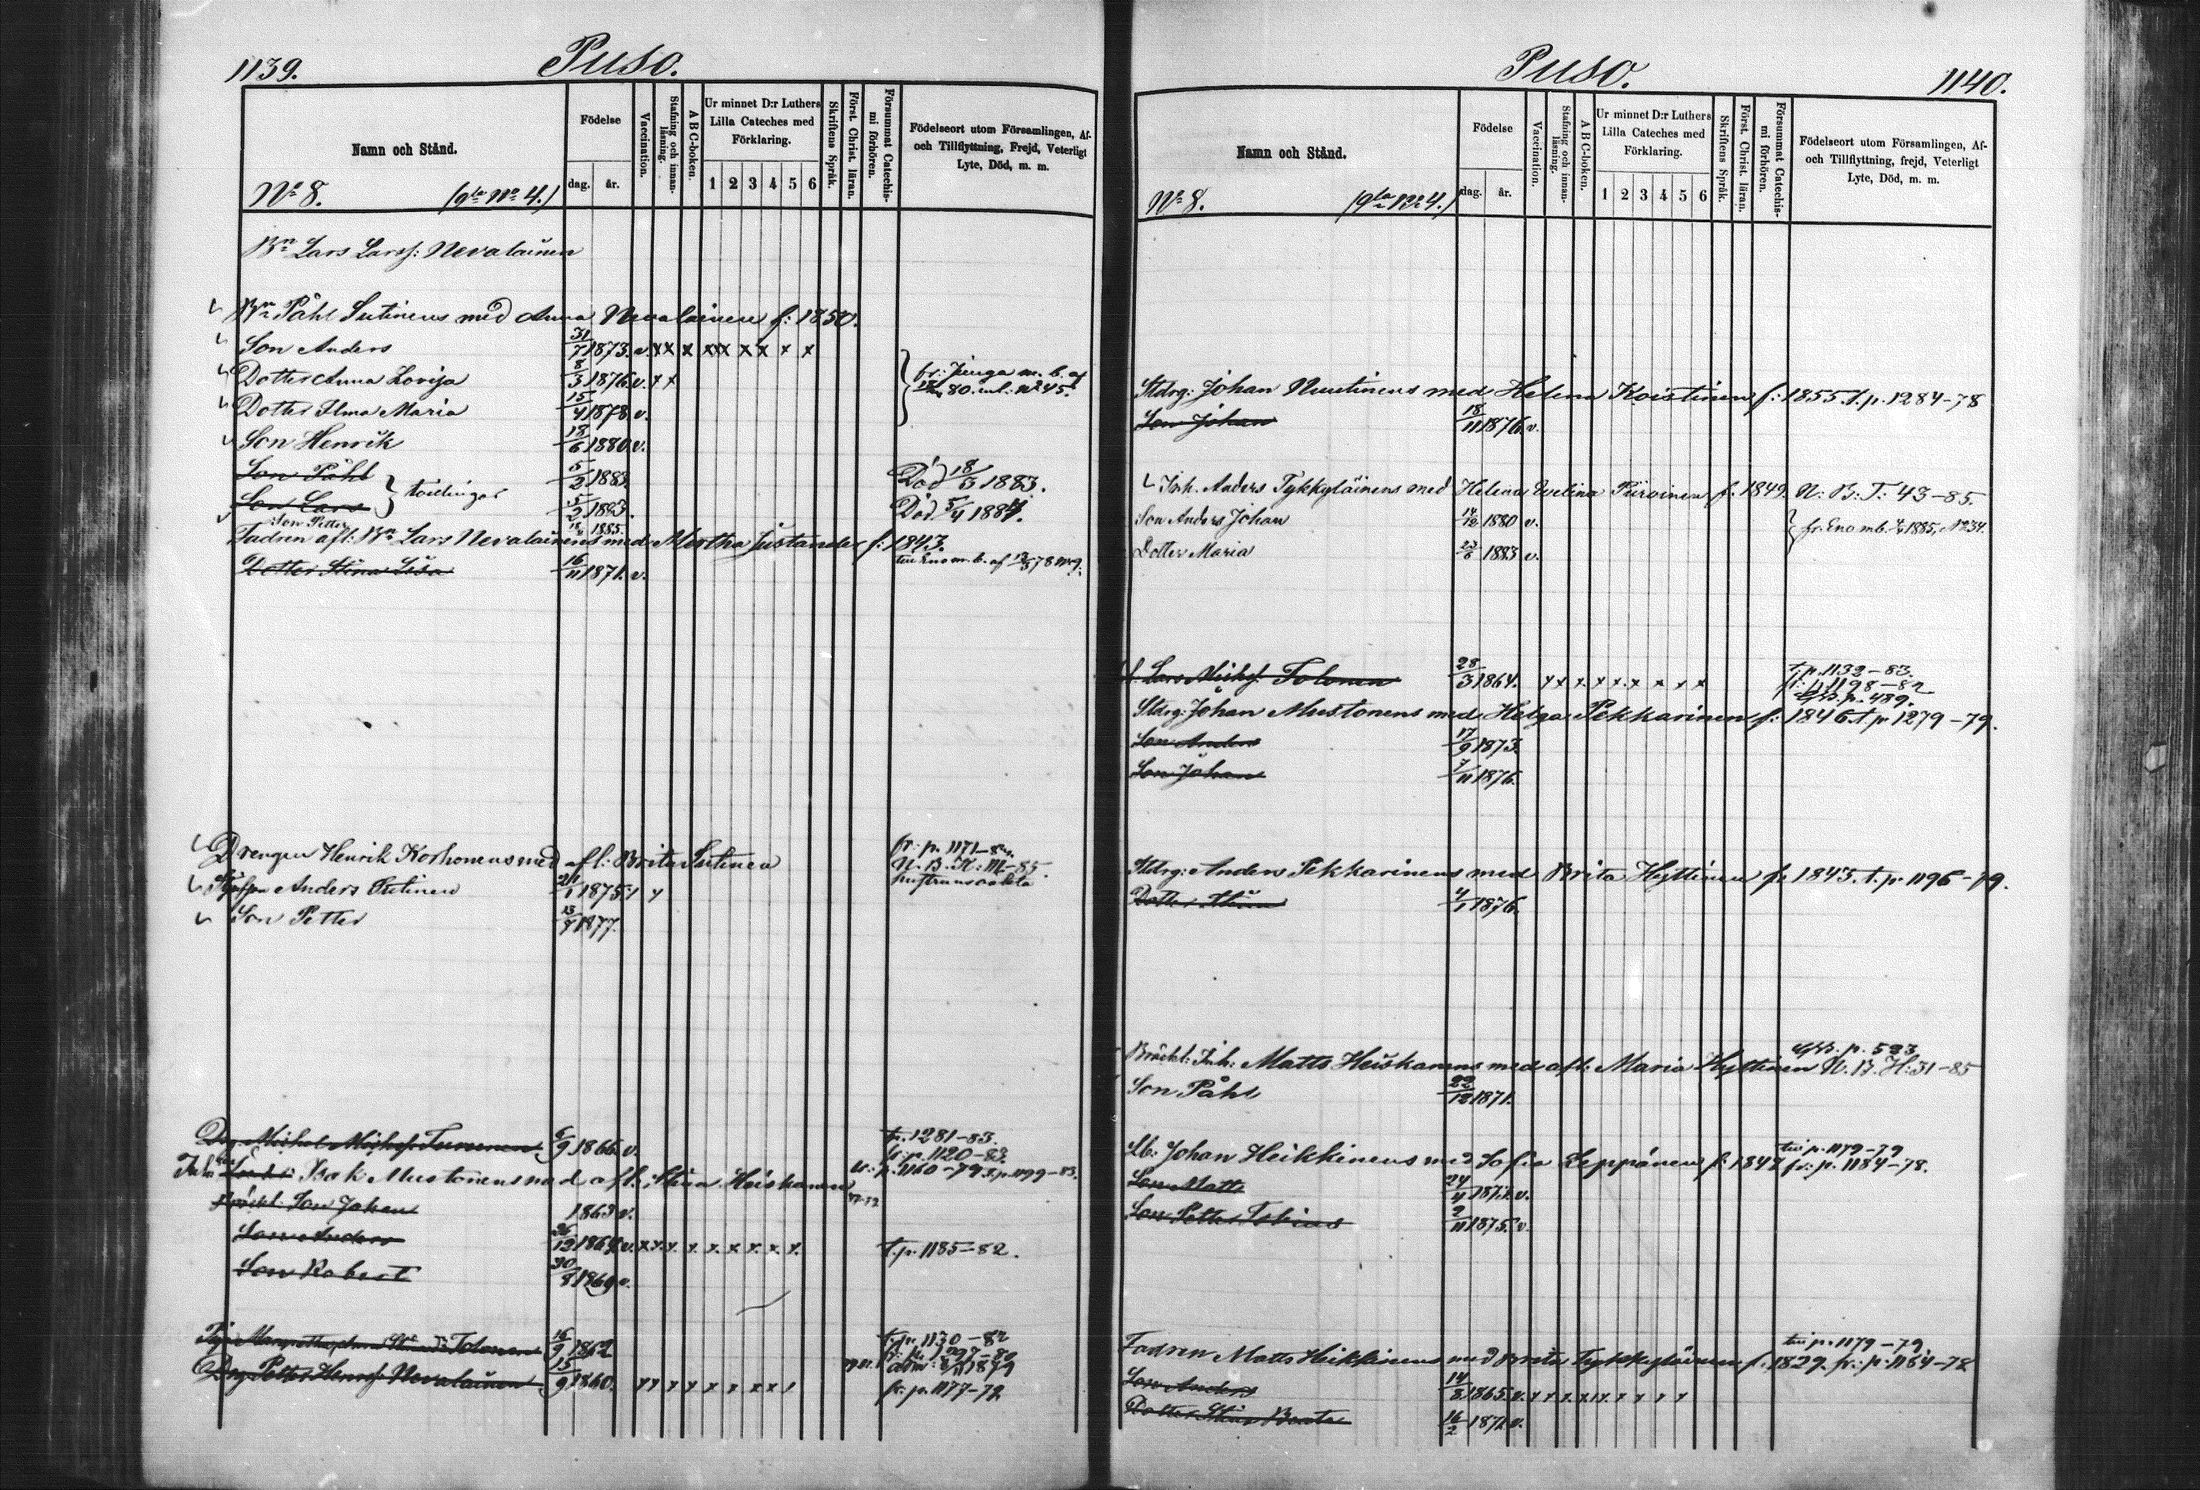 1139.
Puso.
Namn och Stånd.
Födelse
dag. år.
Vaccination.
Stafning och innanläsning.
A B C-boken.
Ur minnet D:r Luthers Lilla Cateches med Förklaring.
1 2 3 4 5 6
Skriftens Språk.
Först. Christ. läran.
Försummat Catechismi förhören.
Födelseort utom Församlingen, Af- och Tillflyttning, Frejd, Veterligt Lyte, Död, m. m.
No 8. (gla No 4.)
Bn Lars Larsf: Nevalainen
Bn Påhl Sutinens med Anna Nevalainen f: 1850.
Son Anders 31/7 1873. v. x x x x x x x x x x
Dotter Anna Lovisa 8/3 1876 v. x x
fr: Juuga m. b. af 80. inl. No 45.
Dotter Ilma Maria 15/4 1878 v.
Son Henrik 18/6 1880 v.
Son Påhl 5/2 1883. Död 18/3 1883.
tvillingar
Son Lars 5/2 1883. Död 5/4 1884.
Son Petter 1885.
Fadren afl: Bn Lars Nevalainens med Mertha Justander f: 1843.
Dotter Stina Lisa 16/11 1871. v. till Eno m. b. af 78 No 9.
Drengen Henrik Korhonens med afl: Brita Sutinen fr: p. 1171-82.
N. B. K: 111-85.
Anders Sutinen 1875 x
Son Petter 13/9 1877.
Drg. Michel Michelsf. Turunen 6/9 1866 v. t. p. 1281-83.
fr: p. 1120-83
Isak Mustonens med afl: Stina Heiskanen fr: p. 1160-79. t. p. 1199-83.
Son Johan 1863 v.
Son Anders 26/12 1864 v. x x x x x x x x x. t. p. 1185-82.
Son Robert 30/8 1869 v.
Tolonen 16/9 1862 t. p. 1130-82
Drg. Petter Henrsf. Nevalainen 15/9 1860. x x x x x x x x fr. p. 1177-78
Puso.
1140.
Namn och Stånd.
Födelse
dag. år.
Vaccination.
Stafning och innanläsning.
A B C-boken.
Ur minnet D:r Luthers Lilla Cateches med Förklaring.
1 2 3 4 5 6
Skriftens Språk.
Först. Christ. läran.
Försummat Catechismi förhören.
Födelseort utom Församlingen, Af- och Tillflyttning, frejd, Veterligt Lyte, Död, m. m.
No 8. (gla No 4.)
Stdrg: Johan Nuutinens med Helena Koistinen f: 1855. t. p. 1284-78
Son Johan 18/11 1876. v.
Inh. Anders Tykkyläinens med Helena Evelina Piiroinen f. 1849. N: B: T: 43-85.
Son Anders Johan 14/12 1880 v.
fr. Eno mb. 1885, No 34.
Dotter Maria 23/6 1883 v.
Lars Michsf. Tolonen 28/3 1864. x x x x x x x x x t. p. 1132-83.
fr. p. 1198-82
p. 489.
Stdrg: Johan Mustonens med Helga Pekkarinen f: 1846. t. p. 1279-79.
Son Anders 17/9 1873.
Son Johan 7/11 1876.
Stdrg: Anders Pekkarinens med Brita Hyttinen f: 1843. t. p. 1196-79.
Dotter Stina 4/1 1876.
p. 523
Bräckl: Inh: Matts Heiskanens med afl: Maria Hyttinen N. B. H: 31-85
Son Påhl 22/12 1871.
till p. 1179-79
Johan Heikkinens med Sofia Leppänen f. 1847 fr: p. 1184-78.
Son Matts 24/4 1871. v.
Son Petter Tobias 2/11 1875. v.
till p. 1179-79.
Fadren Matts Heikkinens med Brita Tykkyläinen f. 1829. fr: p. 1184-78
Son Anders 14/8 1865 v. x x x x x x x x x
Dotter Stina Beata 16/2 1872 v.